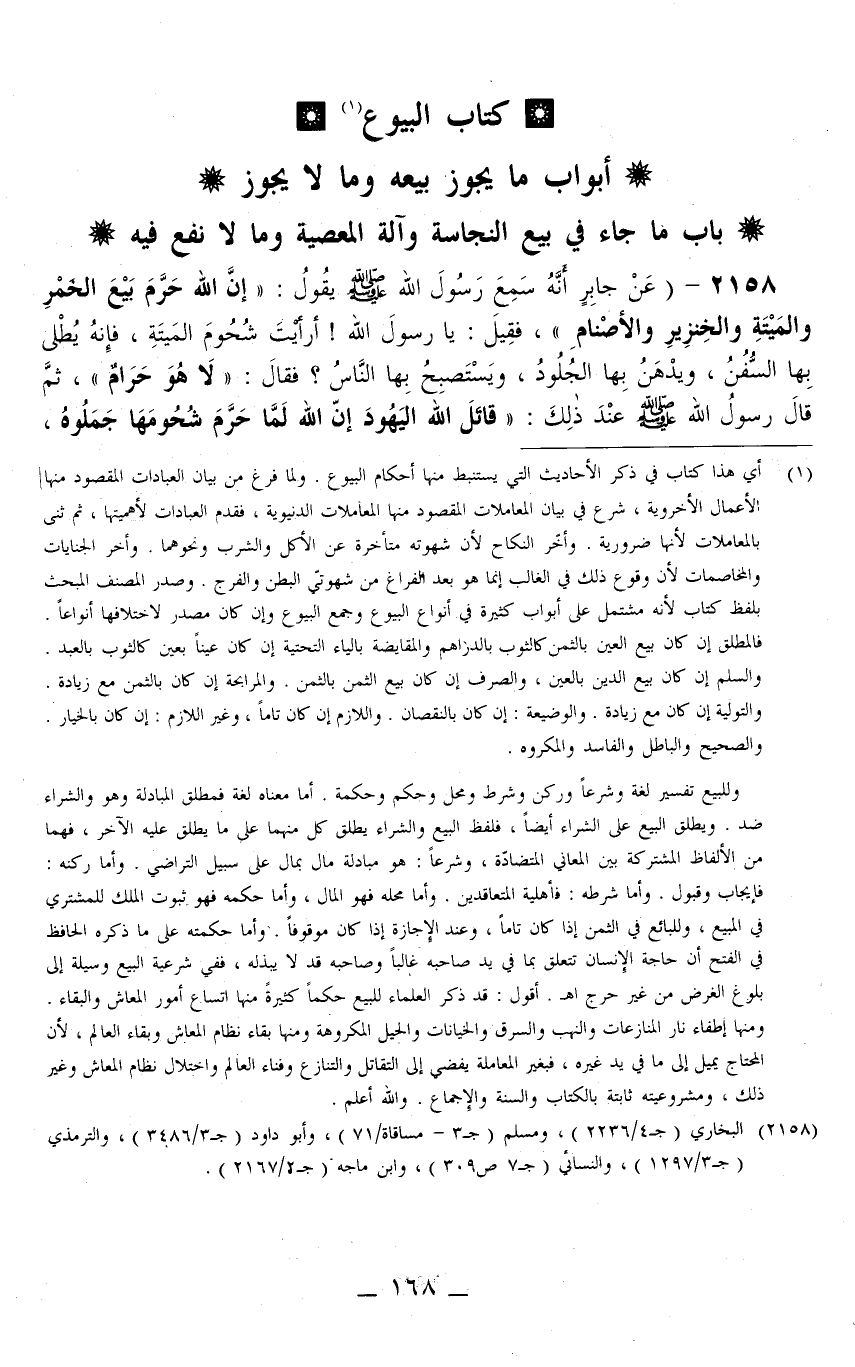 كتاب البيوع(١)
أبواب ما يجوز بيعه وما لا يجوز
باب ما جاء في بيع النجاسة وآلة المعصية وما لا نفع فيه
٢١٥٨ – ( عَنْ جابِرٍ أَنَّهُ سَمِعَ رَسُولَ الله ﷺ يقُولُ : « إنَّ الله حَرَّمَ بَيْعَ الخَمْرِ
والمَيْتَةِ والخِنزِيرِ والأصْنامِ » ، فقِيلَ : يا رسولَ الله ! أرأيْتَ شُحُومَ المَيتَةِ ، فإنهُ يُطْلى
بِها السُّفُنُ ، ويدْهَنُ بِها الجُلُودُ ، ويَسْتَصبِحُ بِها النَّاسُ ؟ فقالَ : « لَا هُوَ حَرَامٌ » ، ثمَّ
قالَ رسولُ الله ﷺ عنْدَ ذٰلِكَ : « قاتَلَ الله اليَهُودَ إنّ الله لَمَّا حَرَّمَ شُحُومَهَا جَمَلُوهُ ،
(١) أي هذا كتاب في ذكر الأحاديث التي يستنبط منها أحكام البيوع . ولما فرغ من بيان العبادات المقصود منها
الأعمال الأخروية ، شرع في بيان المعاملات المقصود منها المعاملات الدنيوية ، فقدم العبادات لأهميتها ، ثم ثنى
بالمعاملات لأنها ضرورية . وأخّر النكاح لأن شهوته متأخرة عن الأكل والشرب ونحوهما . وأخر الجنايات
والمخاصمات لأن وقوع ذلك في الغالب إنما هو بعد الفراغ من شهوتيّ البطن والفرج . وصدر المصنف المبحث
بلفظ كتاب لأنه مشتمل على أبواب كثيرة في أنواع البيوع وجمع البيوع وإن كان مصدر لاختلافها أنواعاً .
فالمطلق إن كان بيع العين بالثمن كالثوب بالدراهم والمقايضة بالياء التحتية إن كان عيناً بعين كالثوب بالعبد .
والسلم إن كان بيع الدين بالعين ، والصرف إن كان بيع الثمن بالثمن . والمرابحة إن كان بالثمن مع زيادة .
والتولية إن كان مع زيادة . والوضيعة : إن كان بالنقصان . واللازم إن كان تاماً ، وغير اللازم : إن كان بالخيار .
والصحيح والباطل والفاسد والمكروه .
وللبيع تفسير لغة وشرعاً وركن وشرط ومحل وحكم وحكمة . أما معناه لغة فمطلق المبادلة وهو والشراء
ضد . ويطلق البيع على الشراء أيضاً ، فلفظ البيع والشراء يطلق كل منهما على ما يطلق عليه الآخر ، فهما
من الألفاظ المشتركة بين المعاني المتضادّة ، وشرعاً : هو مبادلة مال بمال على سبيل التراضي . وأما ركنه :
فإيجاب وقبول . وأما شرطه : فأهلية المتعاقدين . وأما محله فهو المال ، وأما حكمه فهو ثبوت الملك للمشتري
في المبيع ، وللبائع في الثمن إذا كان تاماً ، وعند الإجازة إذا كان موقوفاً . وأما حكمته على ما ذكره الحافظ
في الفتح أن حاجة الإنسان تتعلق بما في يد صاحبه غالباً وصاحبه قد لا يبذله ، ففي شرعية البيع وسيلة إلى
بلوغ الغرض من غير حرج اهـ . أقول : قد ذكر العلماء للبيع حكماً كثيرةً منها اتساع أمور المعاش والبقاء .
ومنها إطفاء نار المنازعات والنهب والسرق والخيانات والحيل المكروهة ومنها بقاء نظام المعاش وبقاء العالم ، لأن
المحتاج يميل إلى ما في يد غيره ، فبغير المعاملة يفضي إلى التقاتل والتنازع وفناء العالم واختلال نظام المعاش وغير
ذلك ، ومشروعيته ثابتة بالكتاب والسنة والإجماع . والله أعلم .
(٢١٥٨) البخاري ( جـ٢٢٣٦/٤ ) ، ومسلم ( جـ٣ – مساقاة/٧١ ) ، وأبو داود ( جـ٣٤٨٦/٣ ) ، والترمذي
( جـ١٢٩٧/٣ ) ، والنسائي ( جـ٧ ص٣٠٩ ) ، وابن ماجه ( جـ٢١٦٧/٢ ) .
– ١٦٨ –